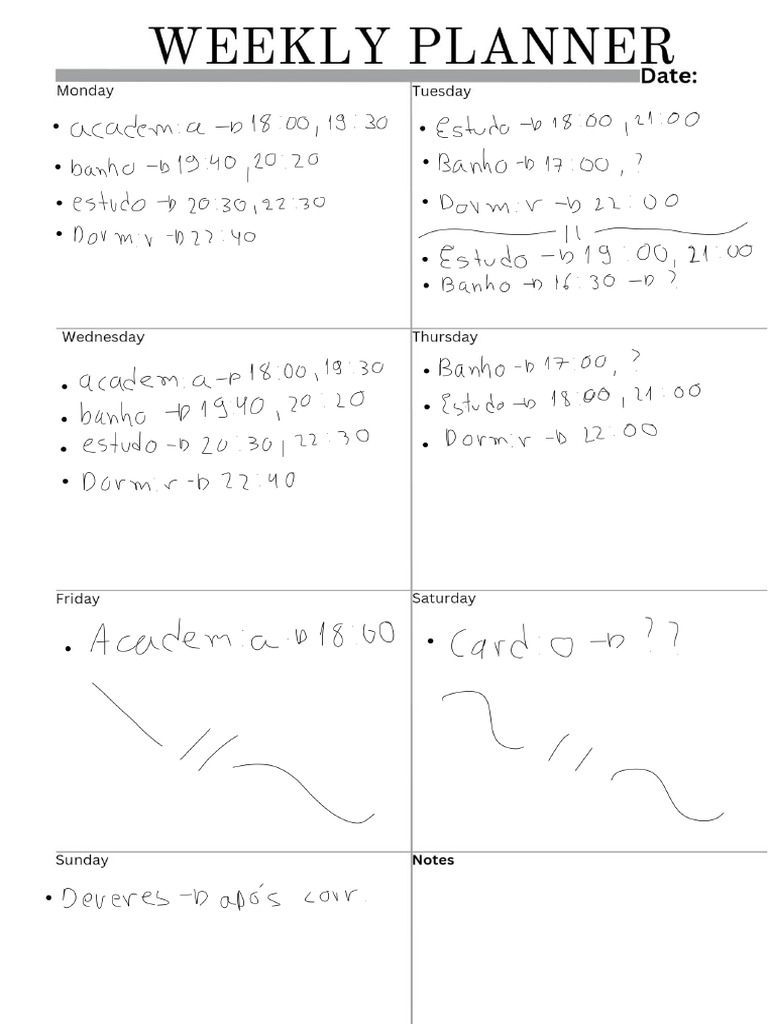 WEEKLY PLANNER
Date:
Monday
• academia → 18:00, 19:30
• banho → 19:40, 20:20
• estudo → 20:30, 22:30
• Dormir → 22:40
Tuesday
• Estudo → 18:00, 21:00
• Banho → 17:00, ?
• Dormir → 22:00
• Estudo → 19:00, 21:00
• Banho → 16:30 → ?
Wednesday
• academia → 18:00, 19:30
• banho → 19:40, 20:20
• estudo → 20:30, 22:30
• Dormir → 22:40
Thursday
• Banho → 17:00, ?
• Estudo → 18:00, 21:00
• Dormir → 22:00
Friday
• Academia → 18:00
Saturday
• Cardio → ??
Sunday
• Deveres → após corr.
Notes